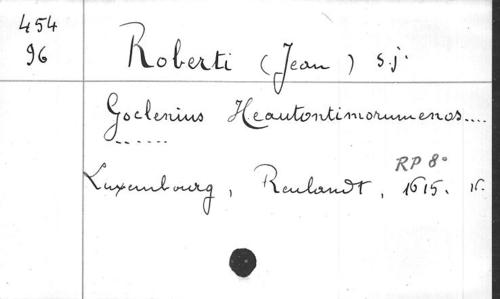 454
96
Roberti (Jean) s.j.
Goclenius Heautontimorumenos....
......
RP 8°
Luxembourg, Reulandt, 1615.